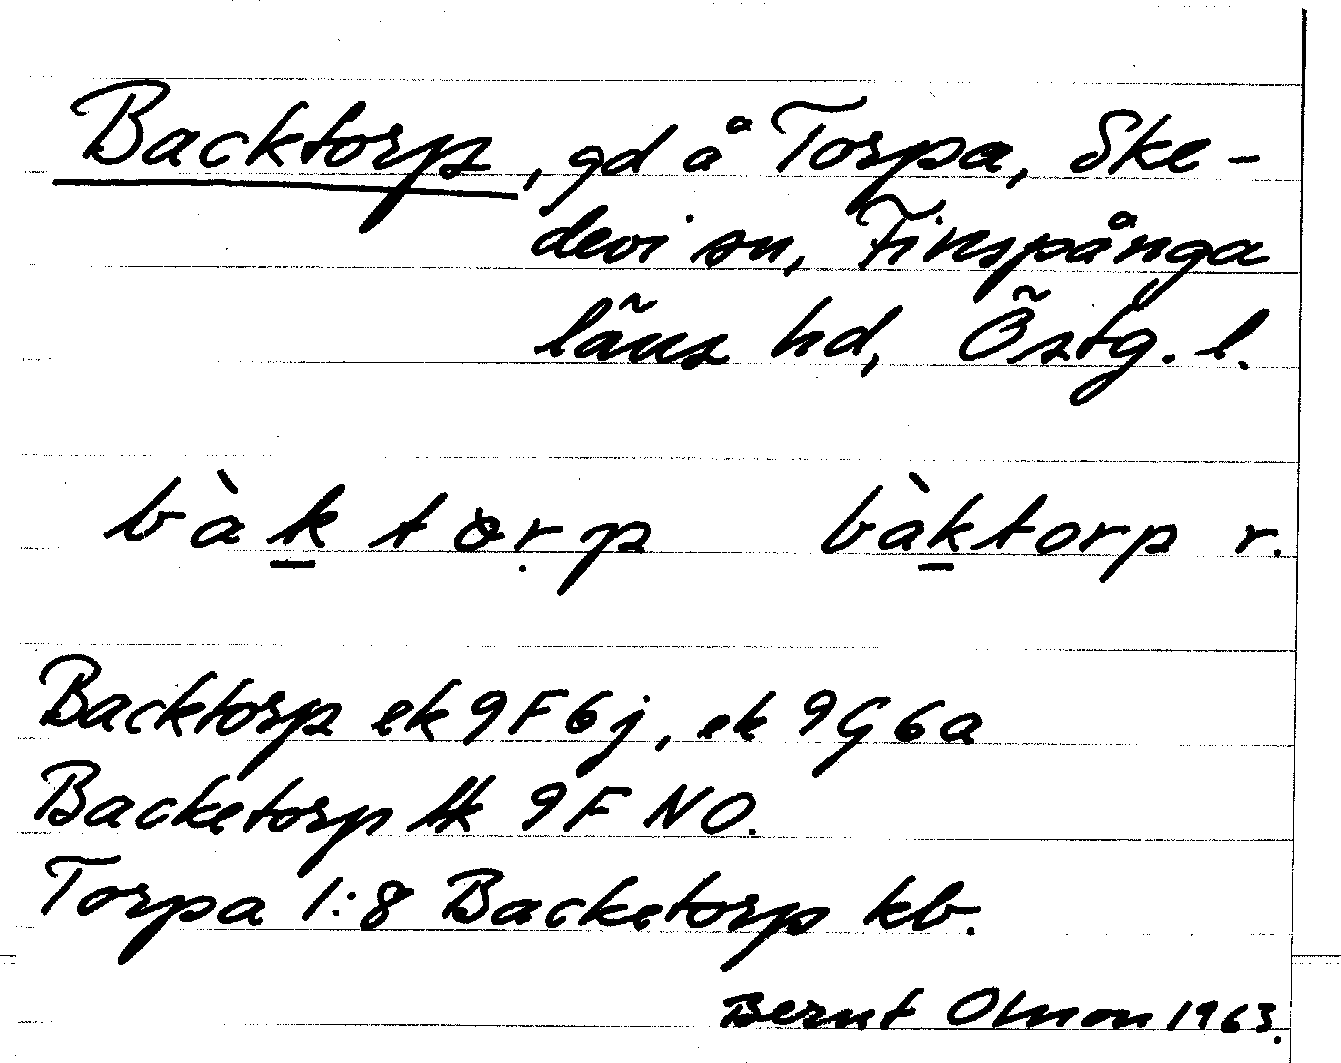 Backtorp, gd å Torpa, Ske-
devi sn, Finspånga
läns hd, Östg. l.
bàk torp bàktorp r.
Backtorp ek 9F6j, ek 9G6a
Backetorp tk 9F NO.
Torpa 1:8 Backetorp kb.
Bernt Olmon 1963.